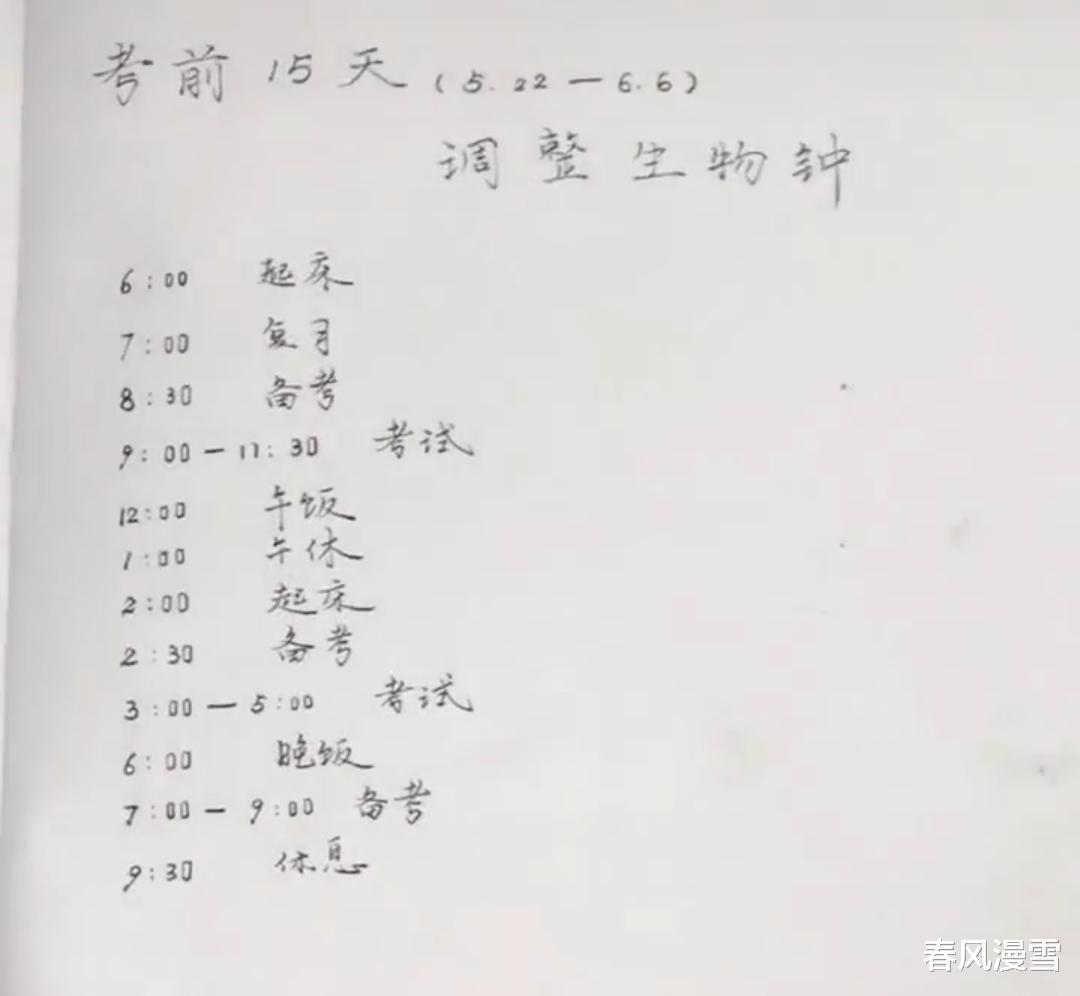 考前15天(5.22—6.6)
调整生物钟
6:00 起床
7:00 复习
8:30 备考
9:00—11:30 考试
12:00 午饭
1:00 午休
2:00 起床
2:30 备考
3:00—5:00 考试
6:00 晚饭
7:00—9:00 备考
9:30 休息
春风漫雪